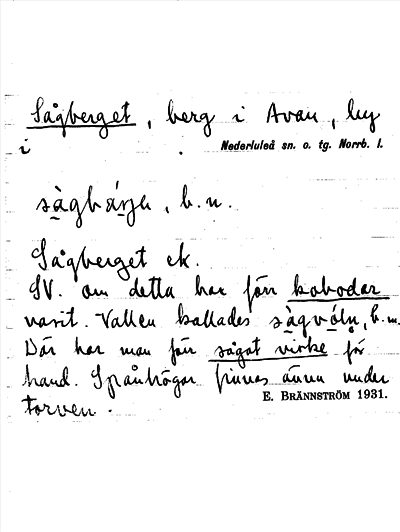 Sågberget, berg i Avan, by
i
Nederluleå sn. o. tg. Norrb. l.
b.n.
Sågberget ek.
SV. om detta har förr kobodar
varit. Vallen kallades sàgvóln, b.m.
Där har man förr sågat virke för
hand. Spånhögar finnas ännu under
torven.
E. BRÄNNSTRÖM 1931.